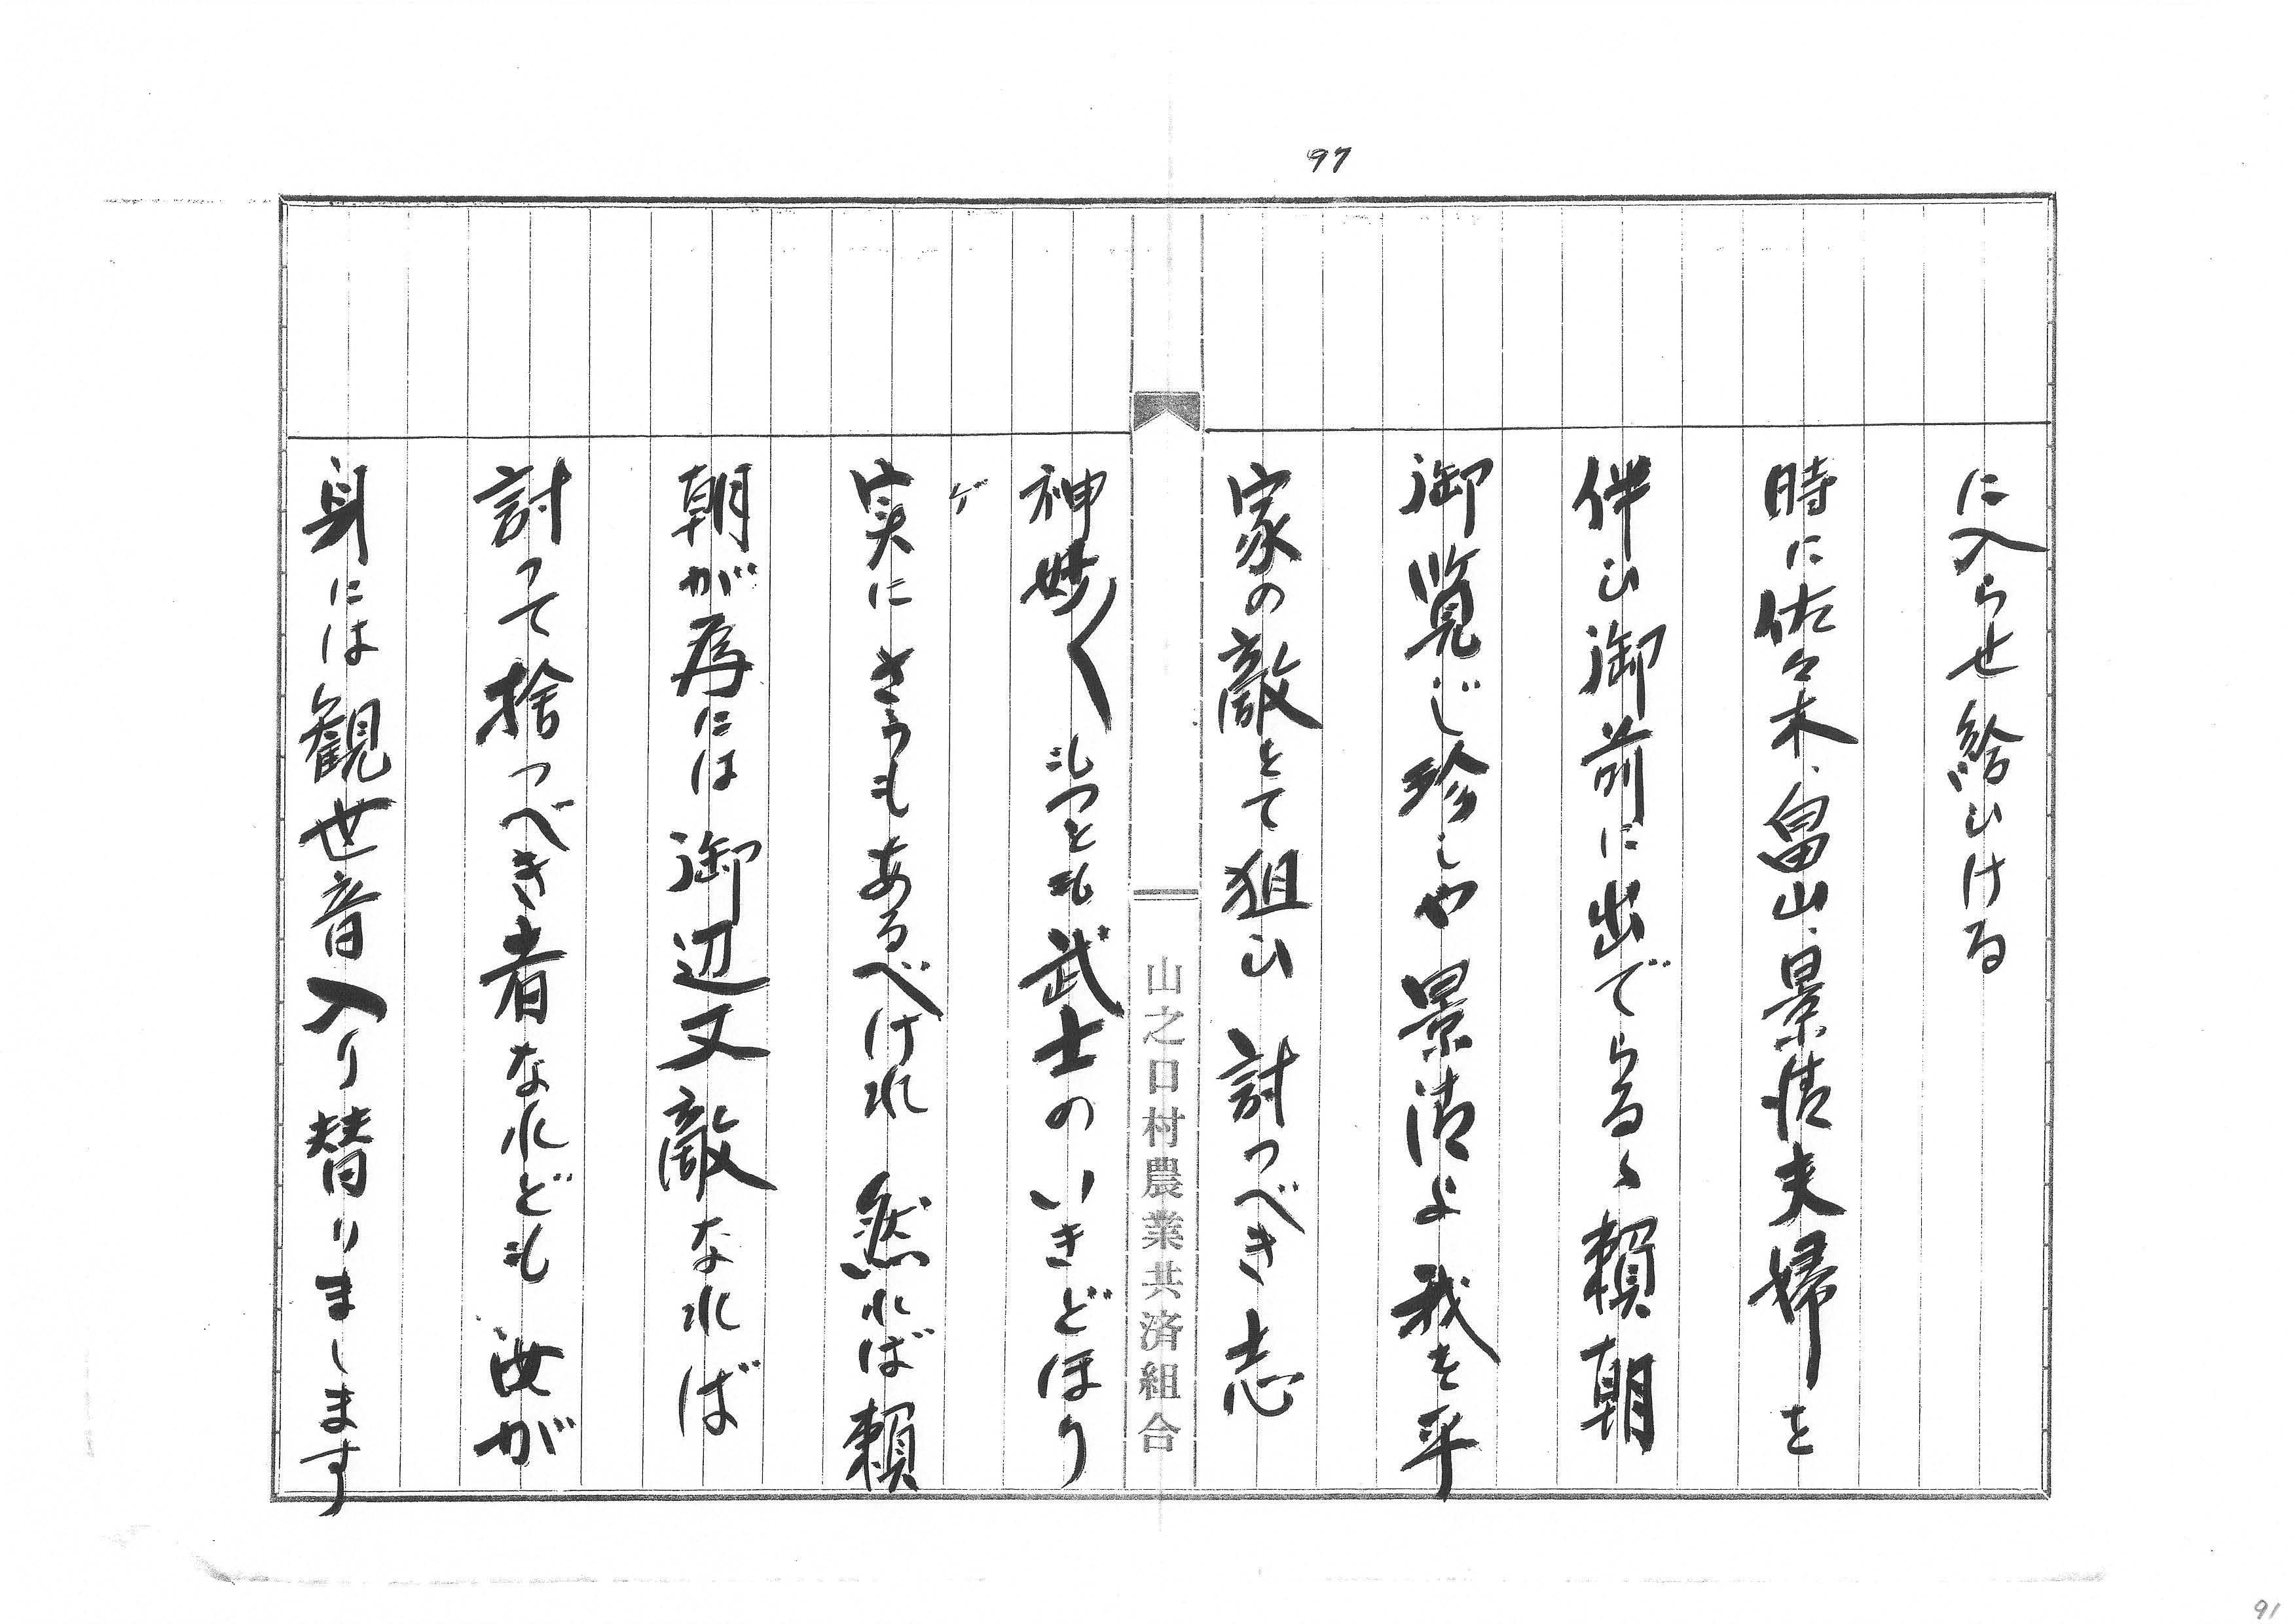 97
に入らせ給ひける
時に佐々木、畠山、景清夫婦を
伴ひ御前に出でらるゝ頼朝
御覧じ珍しや景清よ我を平
家の敵とて狙ひ討つべき志
神妙〱もつとも武士のいきどほり
ゲ
実にさうもあるべけれ然れば頼
朝が為には御辺又敵なれば
討って捨つべき者なれども汝が
身には観世音入り替りまします
山之口村農業共済組合
91